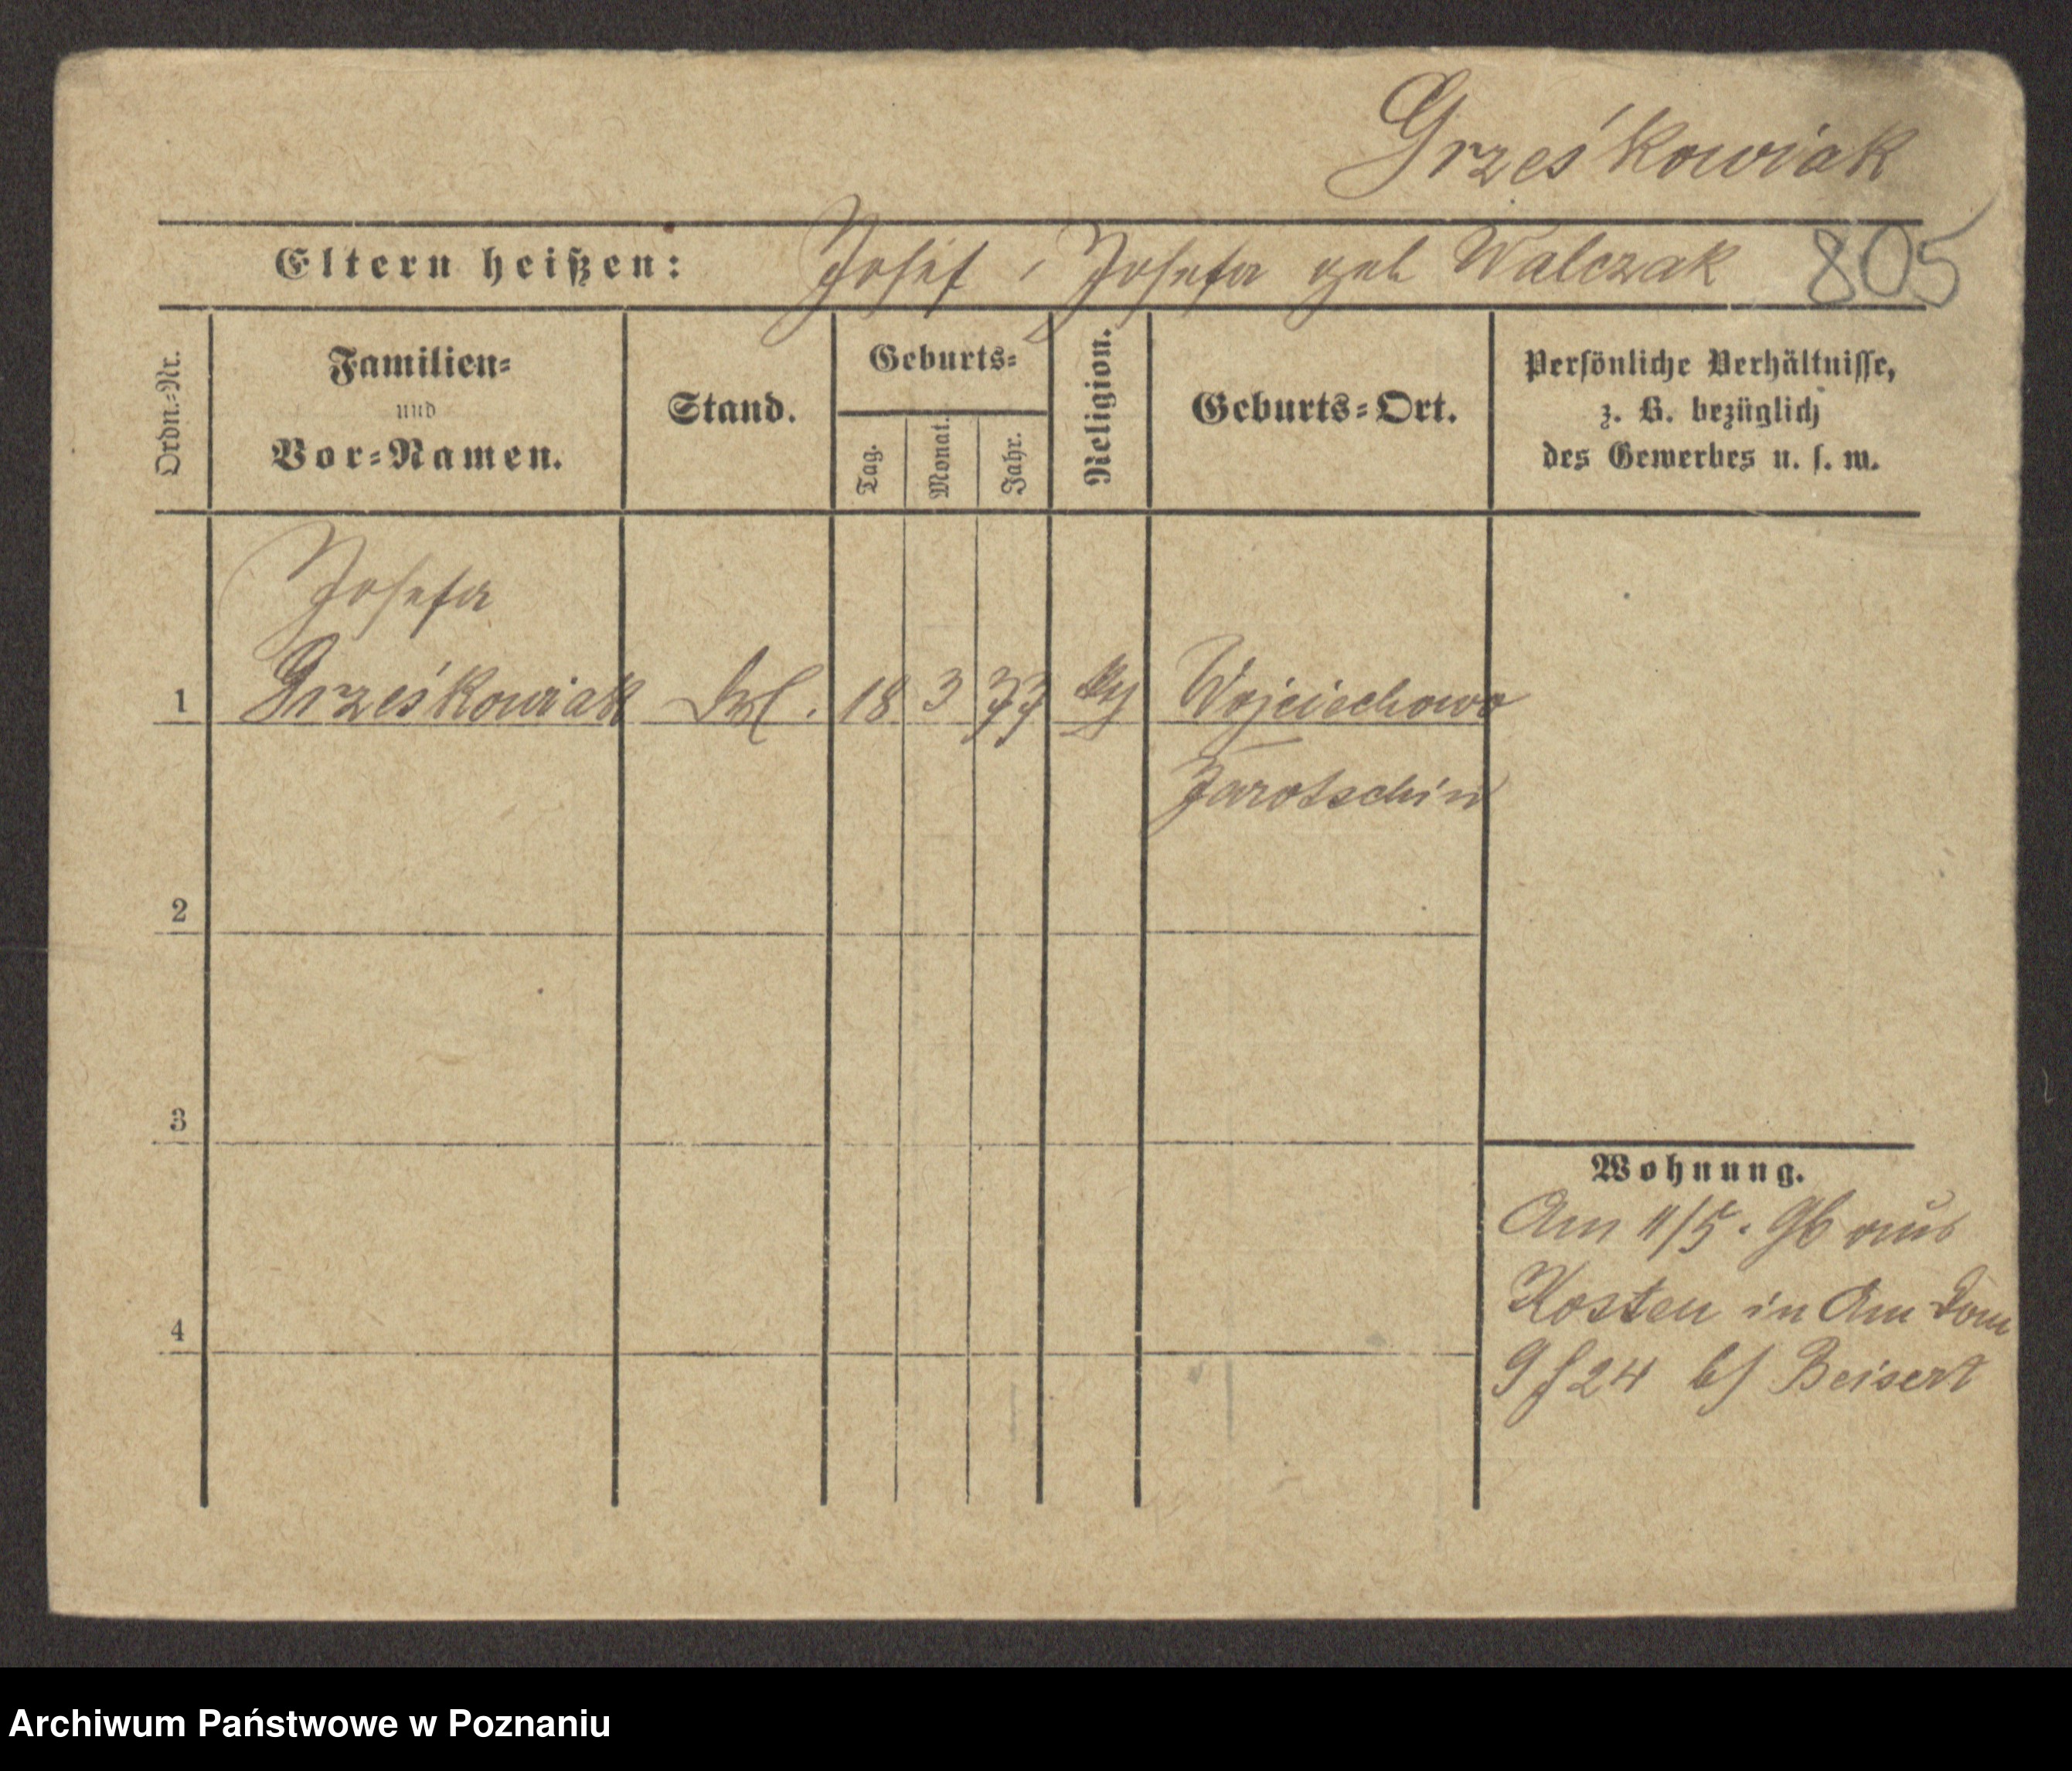 Grześkowiak
Eltern heißen: Josef, Josefa geb Walczak 805
Ordn.=Nr.
Familien=
und
Vor=Namen.
Stand.
Geburts=
Tag.
Monat.
Jahr.
Religion.
Geburts=Ort.
Persönliche Verhältnisse,
z. B. bezüglich
des Gewerbes u. s. w.
Josefa
1 Grześkowiak 18 3 77 Wojciechowo
Jarotschin
2
3
4
Wohnung.
Am 11/5. 96 aus
Kosten in Am Dom
9 f 24 b/ Beisert
Archiwum Państwowe w Poznaniu